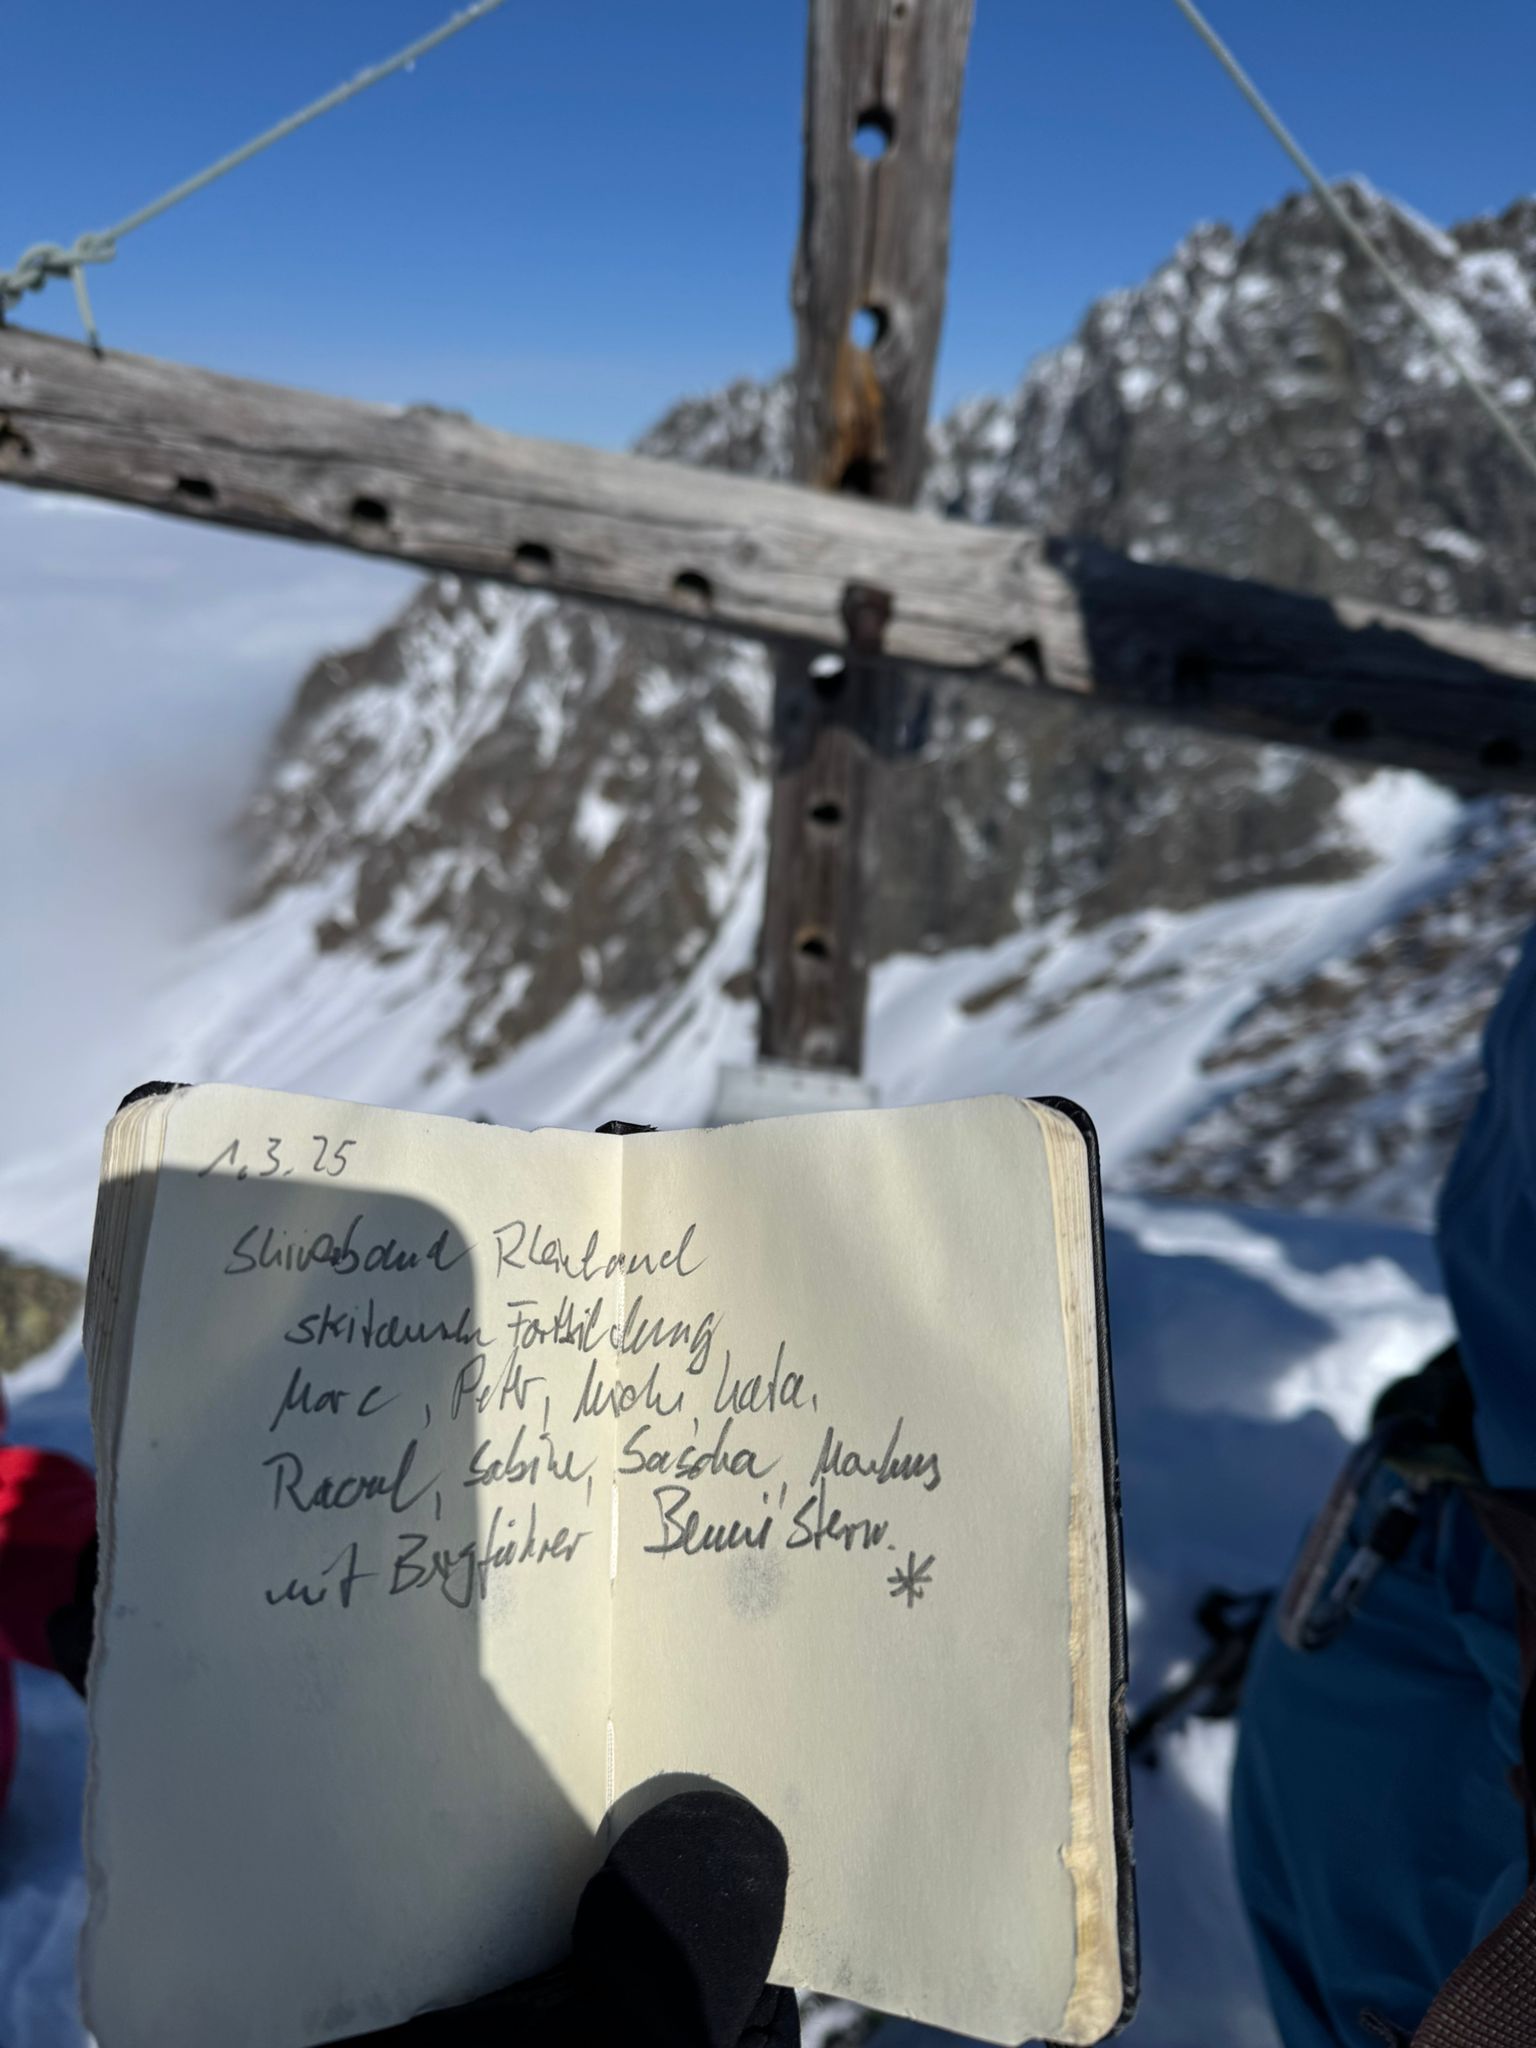 1.3.25
Skiverband Rheinland
Skitouren Fortbildung
Marc, Petr, Michi, Kata,
Raoul, Sabine, Sascha, Markus
mit Bergführer Benni Stern.
*